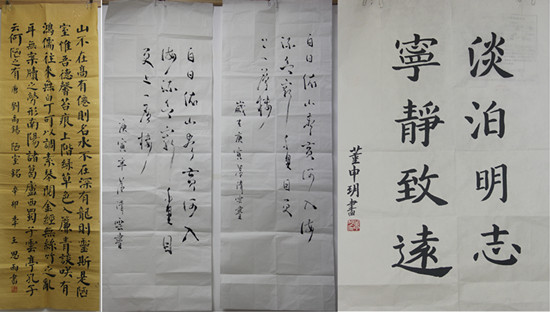 山不在高有僊則名水不在深有龍則靈斯是陋
室惟吾德馨苔痕上階綠草色入簾青談笑有
鴻儒往來無白丁可以調素琴閱金經無絲竹之亂
耳無案牘之勞形南陽諸葛廬西蜀子雲亭孔子
云何陋之有 唐 劉禹錫 陋室銘 辛卯年 王思雨書
白日依山盡黃河入
海流欲窮千里目
更上一層樓
庚寅年
白日依山盡黃河入海
流欲窮千里目更
上一層樓
庚寅
淡泊明志
寧靜致遠
董申玥書